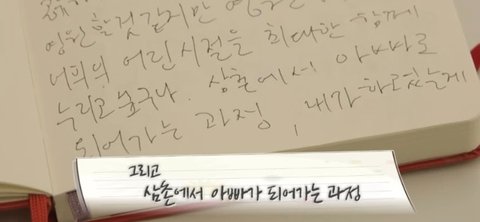 영원할것 같지만 영원
너희의 어린시절을 최대한 함께
누리고 싶구나. 삼촌에서 아빠로
되어가는 과정, 내가 하고있는게
그리고
삼촌에서 아빠가 되어가는 과정